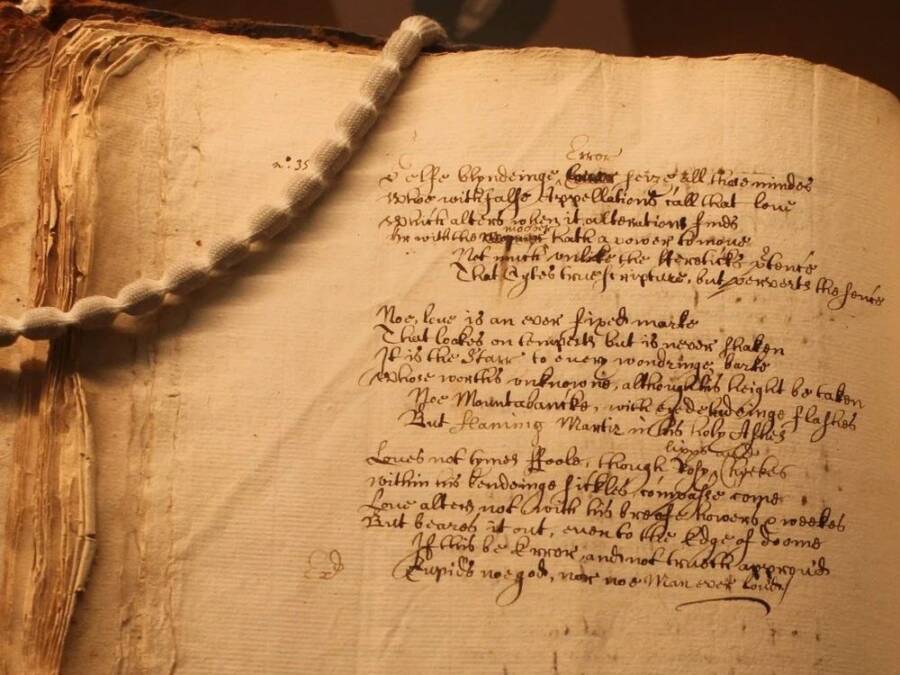 Error
n°. 35
Selfe blyndeinge seize all those mindes
Whoe with false Appellations call that loue
Which alters when it alterations finds
mouer
Or with the hath a power to moue
Not much vnlike the Hereticks p̱tence
That Cytes true scripture, but perverts the sence
Noe, loue is an ever fixed marke
That lookes on tempests but is never shaken
It is the Starr to euery wandringe barke
Whose worths vnknowne, although his height be taken
Noe Mountabancke, with eyedeludeinge flashes
But flaming Martir in his holy Ashes
lipps and
Loues not tymes ffoole, though Rosy Cheekes
within his bendeinge sickles compasse come
Loue alters not with his breife howers & weekes
But beares it out, euen to the Edge of doome
If this be Error and not trueth approu'd
Cupids noe god, nor noe Man ever lou'd